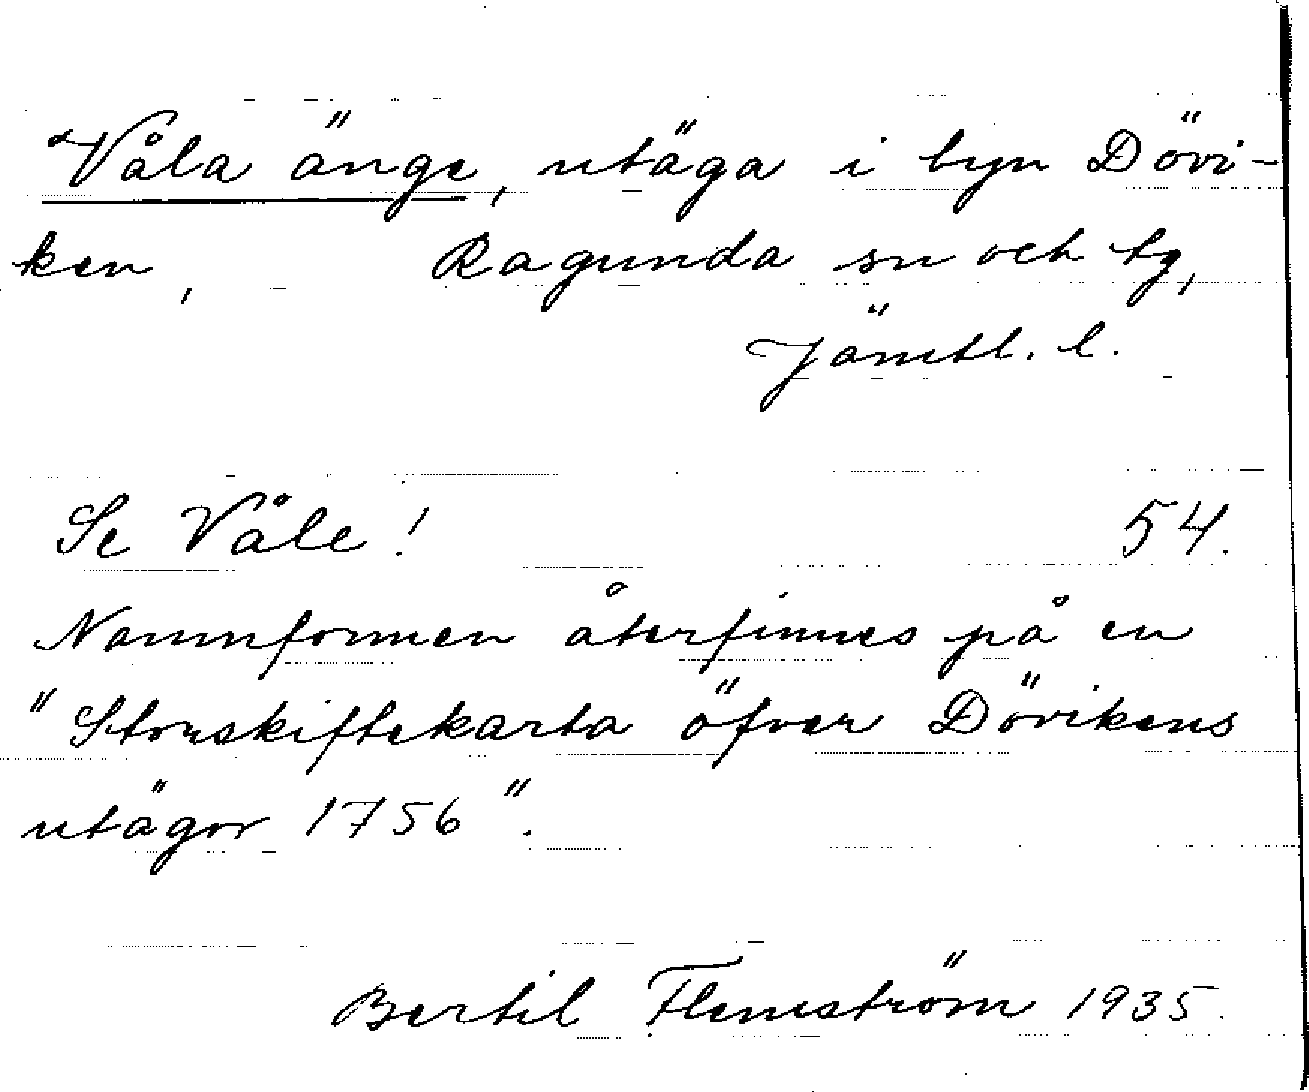 Våla änge, utäga i byn Dövi-
ken, Ragunda sn och tg,
Jämtl. l.
Se Våle! 54.
Namnformen återfinnes på en
"Storskiftekarta öfver Dövikens
utägor 1756".
Bertil Flemström 1935.